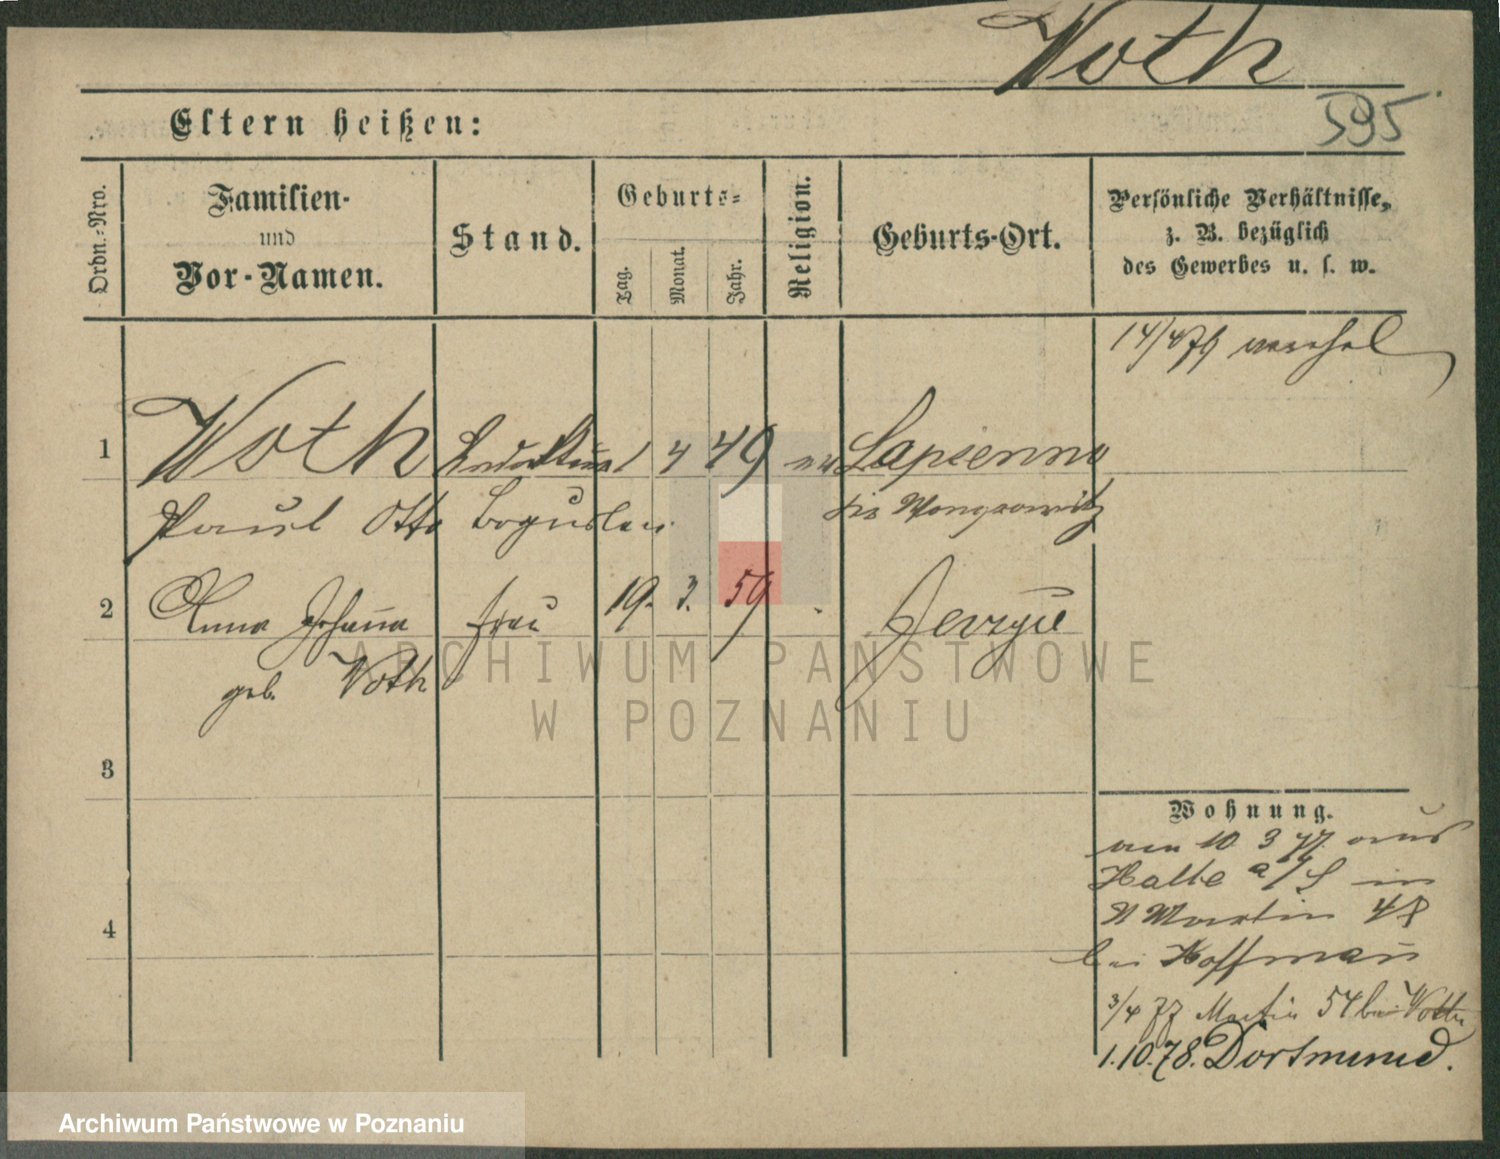 Voth
595
Eltern heißen:
Ordn.-Nro.
Familien-
und
Vor-Namen.
Stand.
Geburts-
Tag.
Monat.
Jahr.
Religion.
Geburts-Ort.
Persönliche Verhältnisse,
z. B. bezüglich
des Gewerbes u. s. w.
14/4 79
1 Voth 1 4 49 Lapienno
Paul Otto Boguslau Wongrowitz
2 Anna Johanna Frau 19. 3. 59 Jerzyce
geb. Voth
3
4
Wohnung.
am 10 3 77 aus
Halle a/S in
St Martin 48
bei Hoffmann
3/4 77 Martin 54 bei Voth
1.10.78. Dortmund.
ARCHIWUM PAŃSTWOWE
W POZNANIU
Archiwum Państwowe w Poznaniu